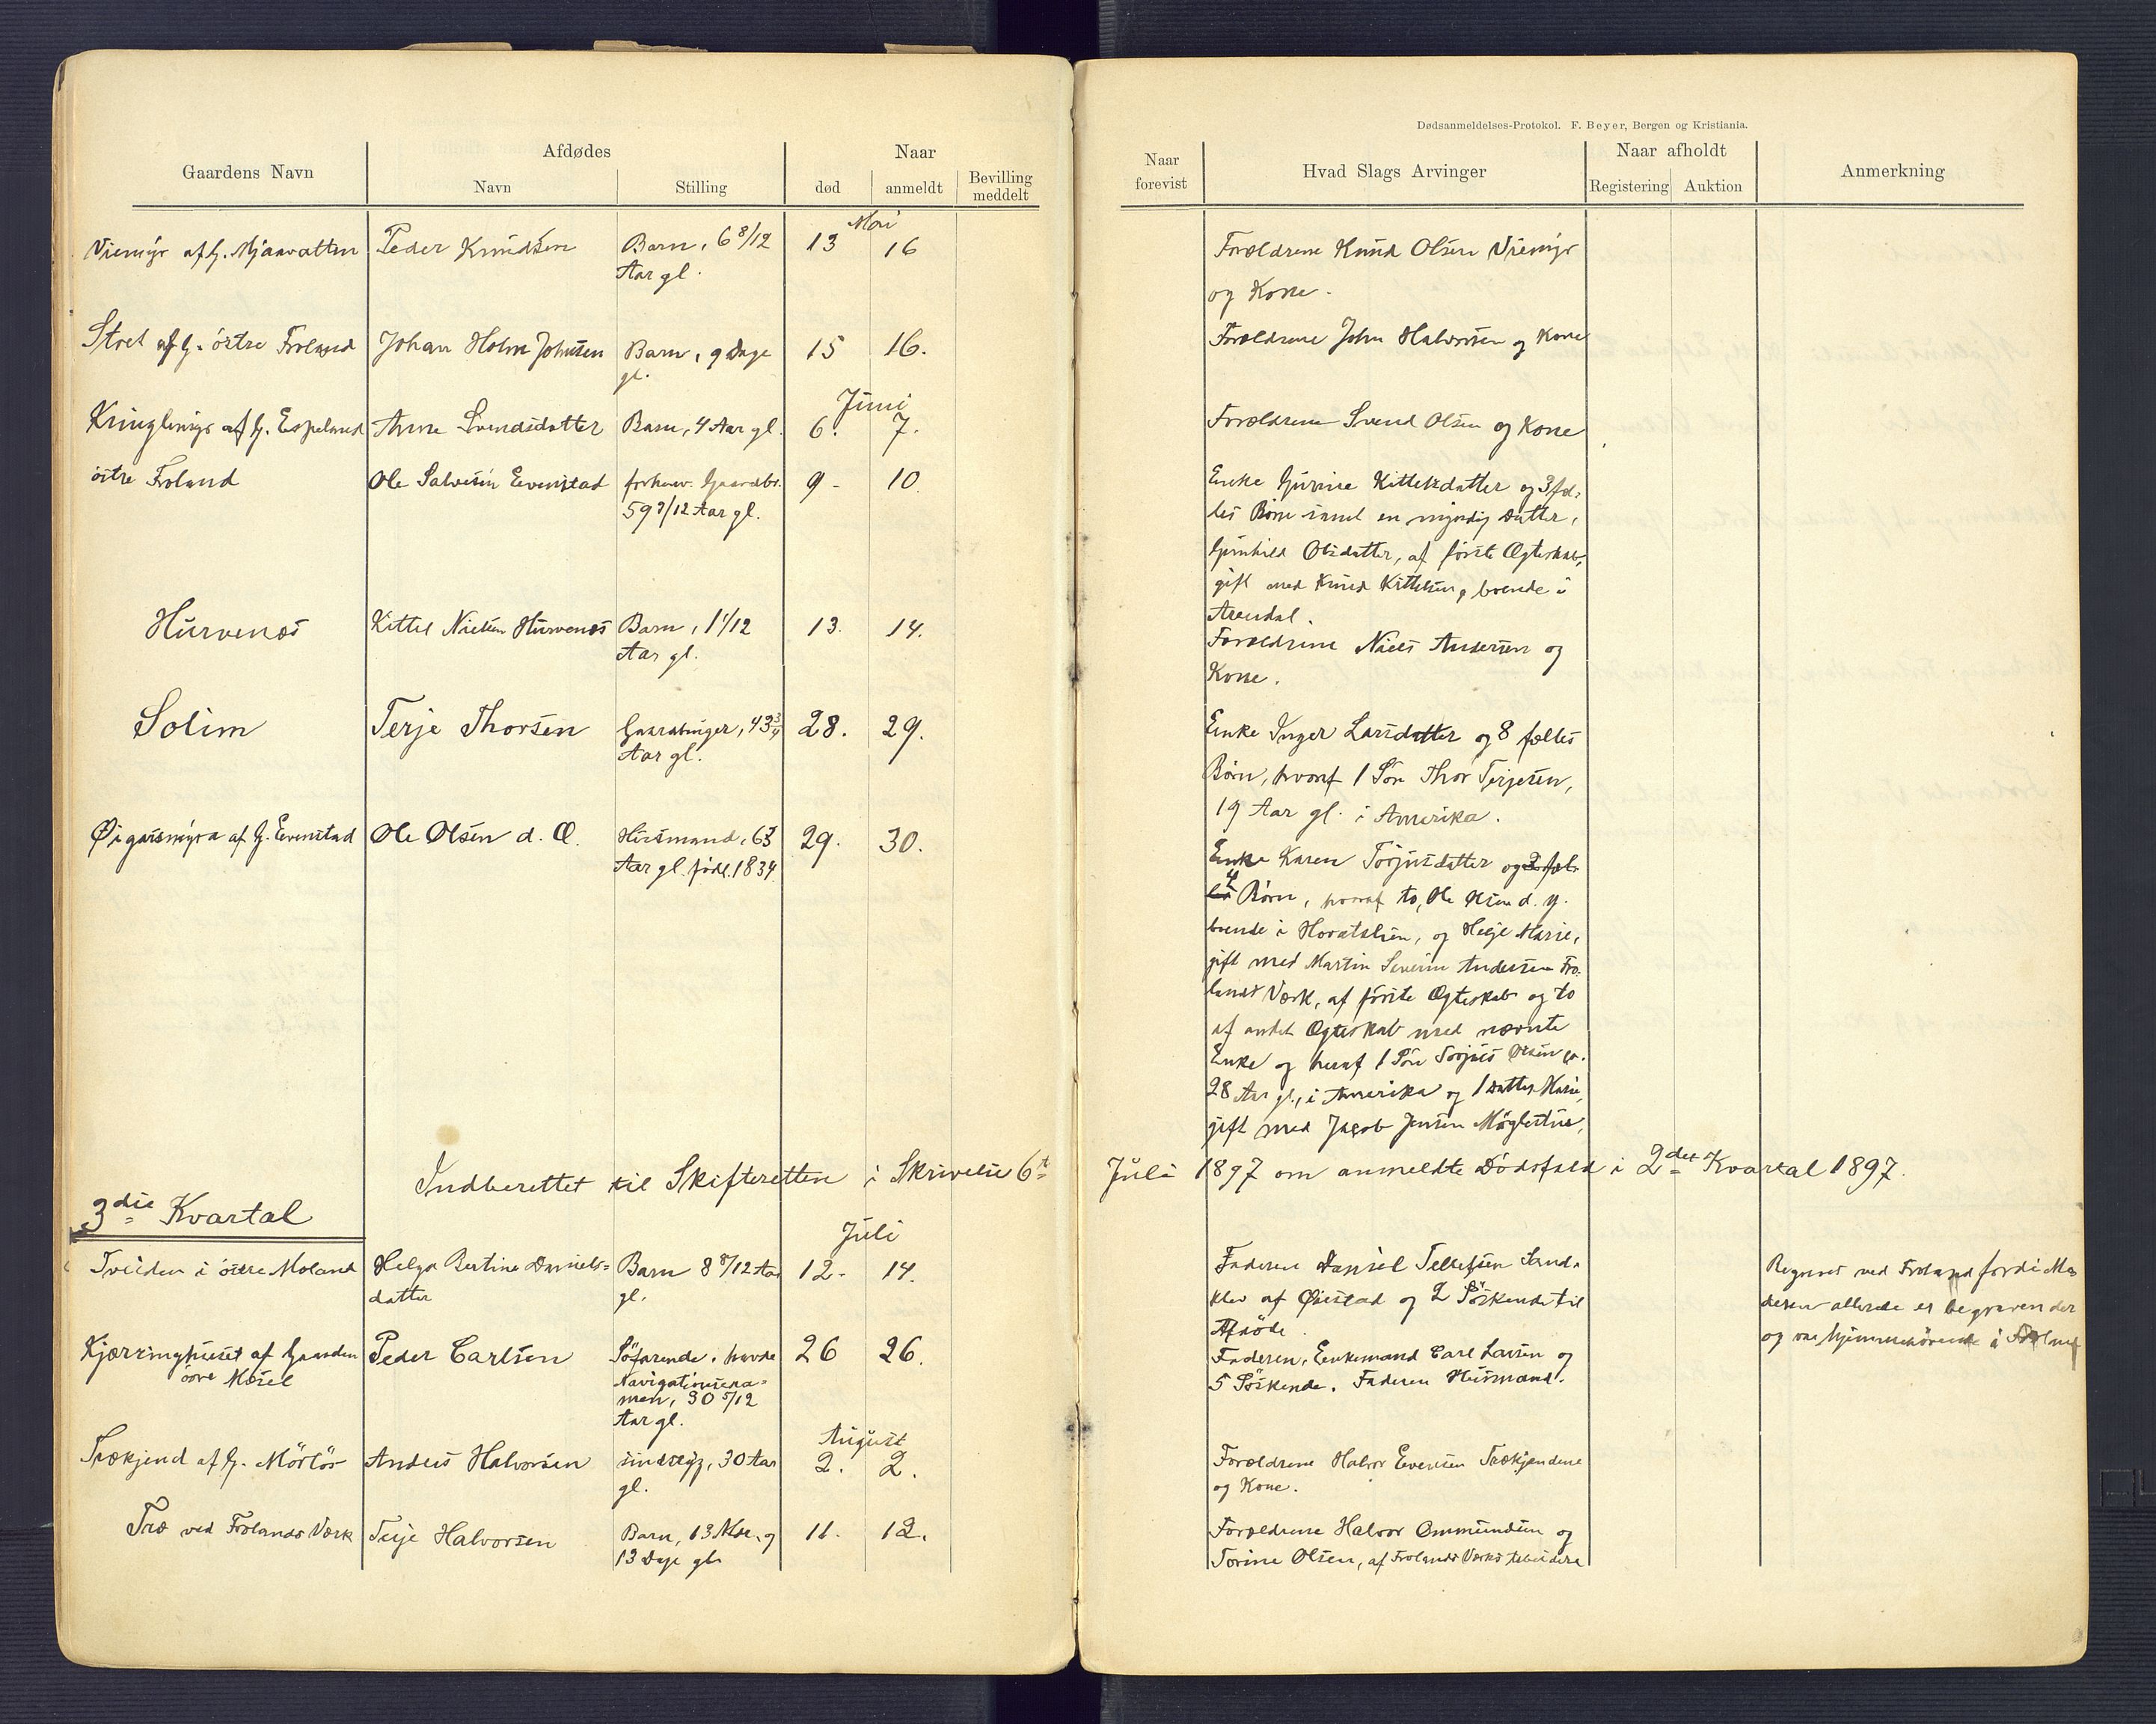 Dødsanmeldelses-Protokol. F. Beyer, Bergen og Kristiania.
Gaardens Navn
Afdødes
Navn
Stilling
Naar
død
anmeldt
Bevilling
meddelt
Naar
forevist
Hvad Slags Arvinger
Naar afholdt
Registering
Auktion
Anmerkning
Mai
Viemyr af G. Mjaavatten
Peder Knudsen
Barn, 6 8/12
Aar gl.
13
16
Forældrene Knud Olsen Viemyr
og Kone.
Stoel af G. östre Froland
Johan Holm Johnsen
Barn, 9 Dage
gl.
15
16.
Forældrene John Halvorsen og Kone
Juni
Kringlemyr af G. Espeland
Anne Svendsdatter
Barn, 4 Aar gl.
6.
7.
Forældrene Svend Olsen og Kone
östre Froland
Ole Salvesen Evenstad
forhenv. Gaardbr.
59 7/12 Aar gl.
9
10.
Enke Gurine Kittelsdatter og 3 fæl-
les Börn samt en myndig Datter,
Gunhild Olsdatter, af förste Ægteskab,
gift med Knud Kittelsen, boende i
Arendal.
Hurvenes
Kittel Nielsen Hurvenes
Barn, 1 1/12
Aar gl.
13.
14.
Forældrene Niels Andersen og
Kone.
Solim
Terje Thorsen
Gaardbruger, 43 3/4
Aar gl.
28.
29.
Enke Inger Larsdatter og 8 fælles
Börn, hvoraf 1 Sön Thor Terjesen,
19 Aar gl. i Amerika.
Øigarsmyra af G. Evenstad
Ole Olsen d. Æ.
Husmand, 63
Aar gl. född. 1834.
29.
30.
Enke Karen Torjusdatter og 2 fæl-
les 4 Börn, hvoraf to, Ole Olsen d. y.
boende i , og Helje Marie,
gift med Martin Severin Andersen Fro-
lands Værk, af förste Ægteskab og to
af andet Ægteskab med nævnte
Enke og heraf 1 Sön Torjus Olsen
28 Aar gl., i Amerika og 1 Datter Marie,
gift med Jacob Jensen Möglestue,
Indberettet til Skifteretten i Skrivelse 6te Juli 1897 om anmeldte Dödsfald i 2det Kvartal 1897.
3die Kvartal
Juli
Tveiden i östre Moland
Helga Bertine Daniels-
datter
Barn 8 8/12 Aar
gl.
12.
14.
Faderen Daniel Tellefsen Sand-
klev af Øiestad og 2 Söskende til
Afdöde.
Regnet ved Froland fordi Mo-
deren allerede er begraven der
og var hjemmehörende i Froland
Kjærringhuset af Gaarden
övre Mesel
Peder Carlsen
Söfarende, havde
Navigationsexa-
men, 30 5/12
Aar gl.
26
26.
Faderen, Enkemand Carl Larsen og
5 Söskende. Faderen Husmand.
August
Trækjend af G. Mörlös
Anders Halvorsen
sindssyg, 30 Aar
gl.
2.
2.
Forældrene Halvor Evensen Trækjendene
og Kone.
Træ ved Frolands Værk
Terje Halvorsen
Barn, 13 Mdr. og
13 Dage gl.
11.
12.
Forældrene Halvor Ommundsen og
Torine Olsen, af Frolands Værks